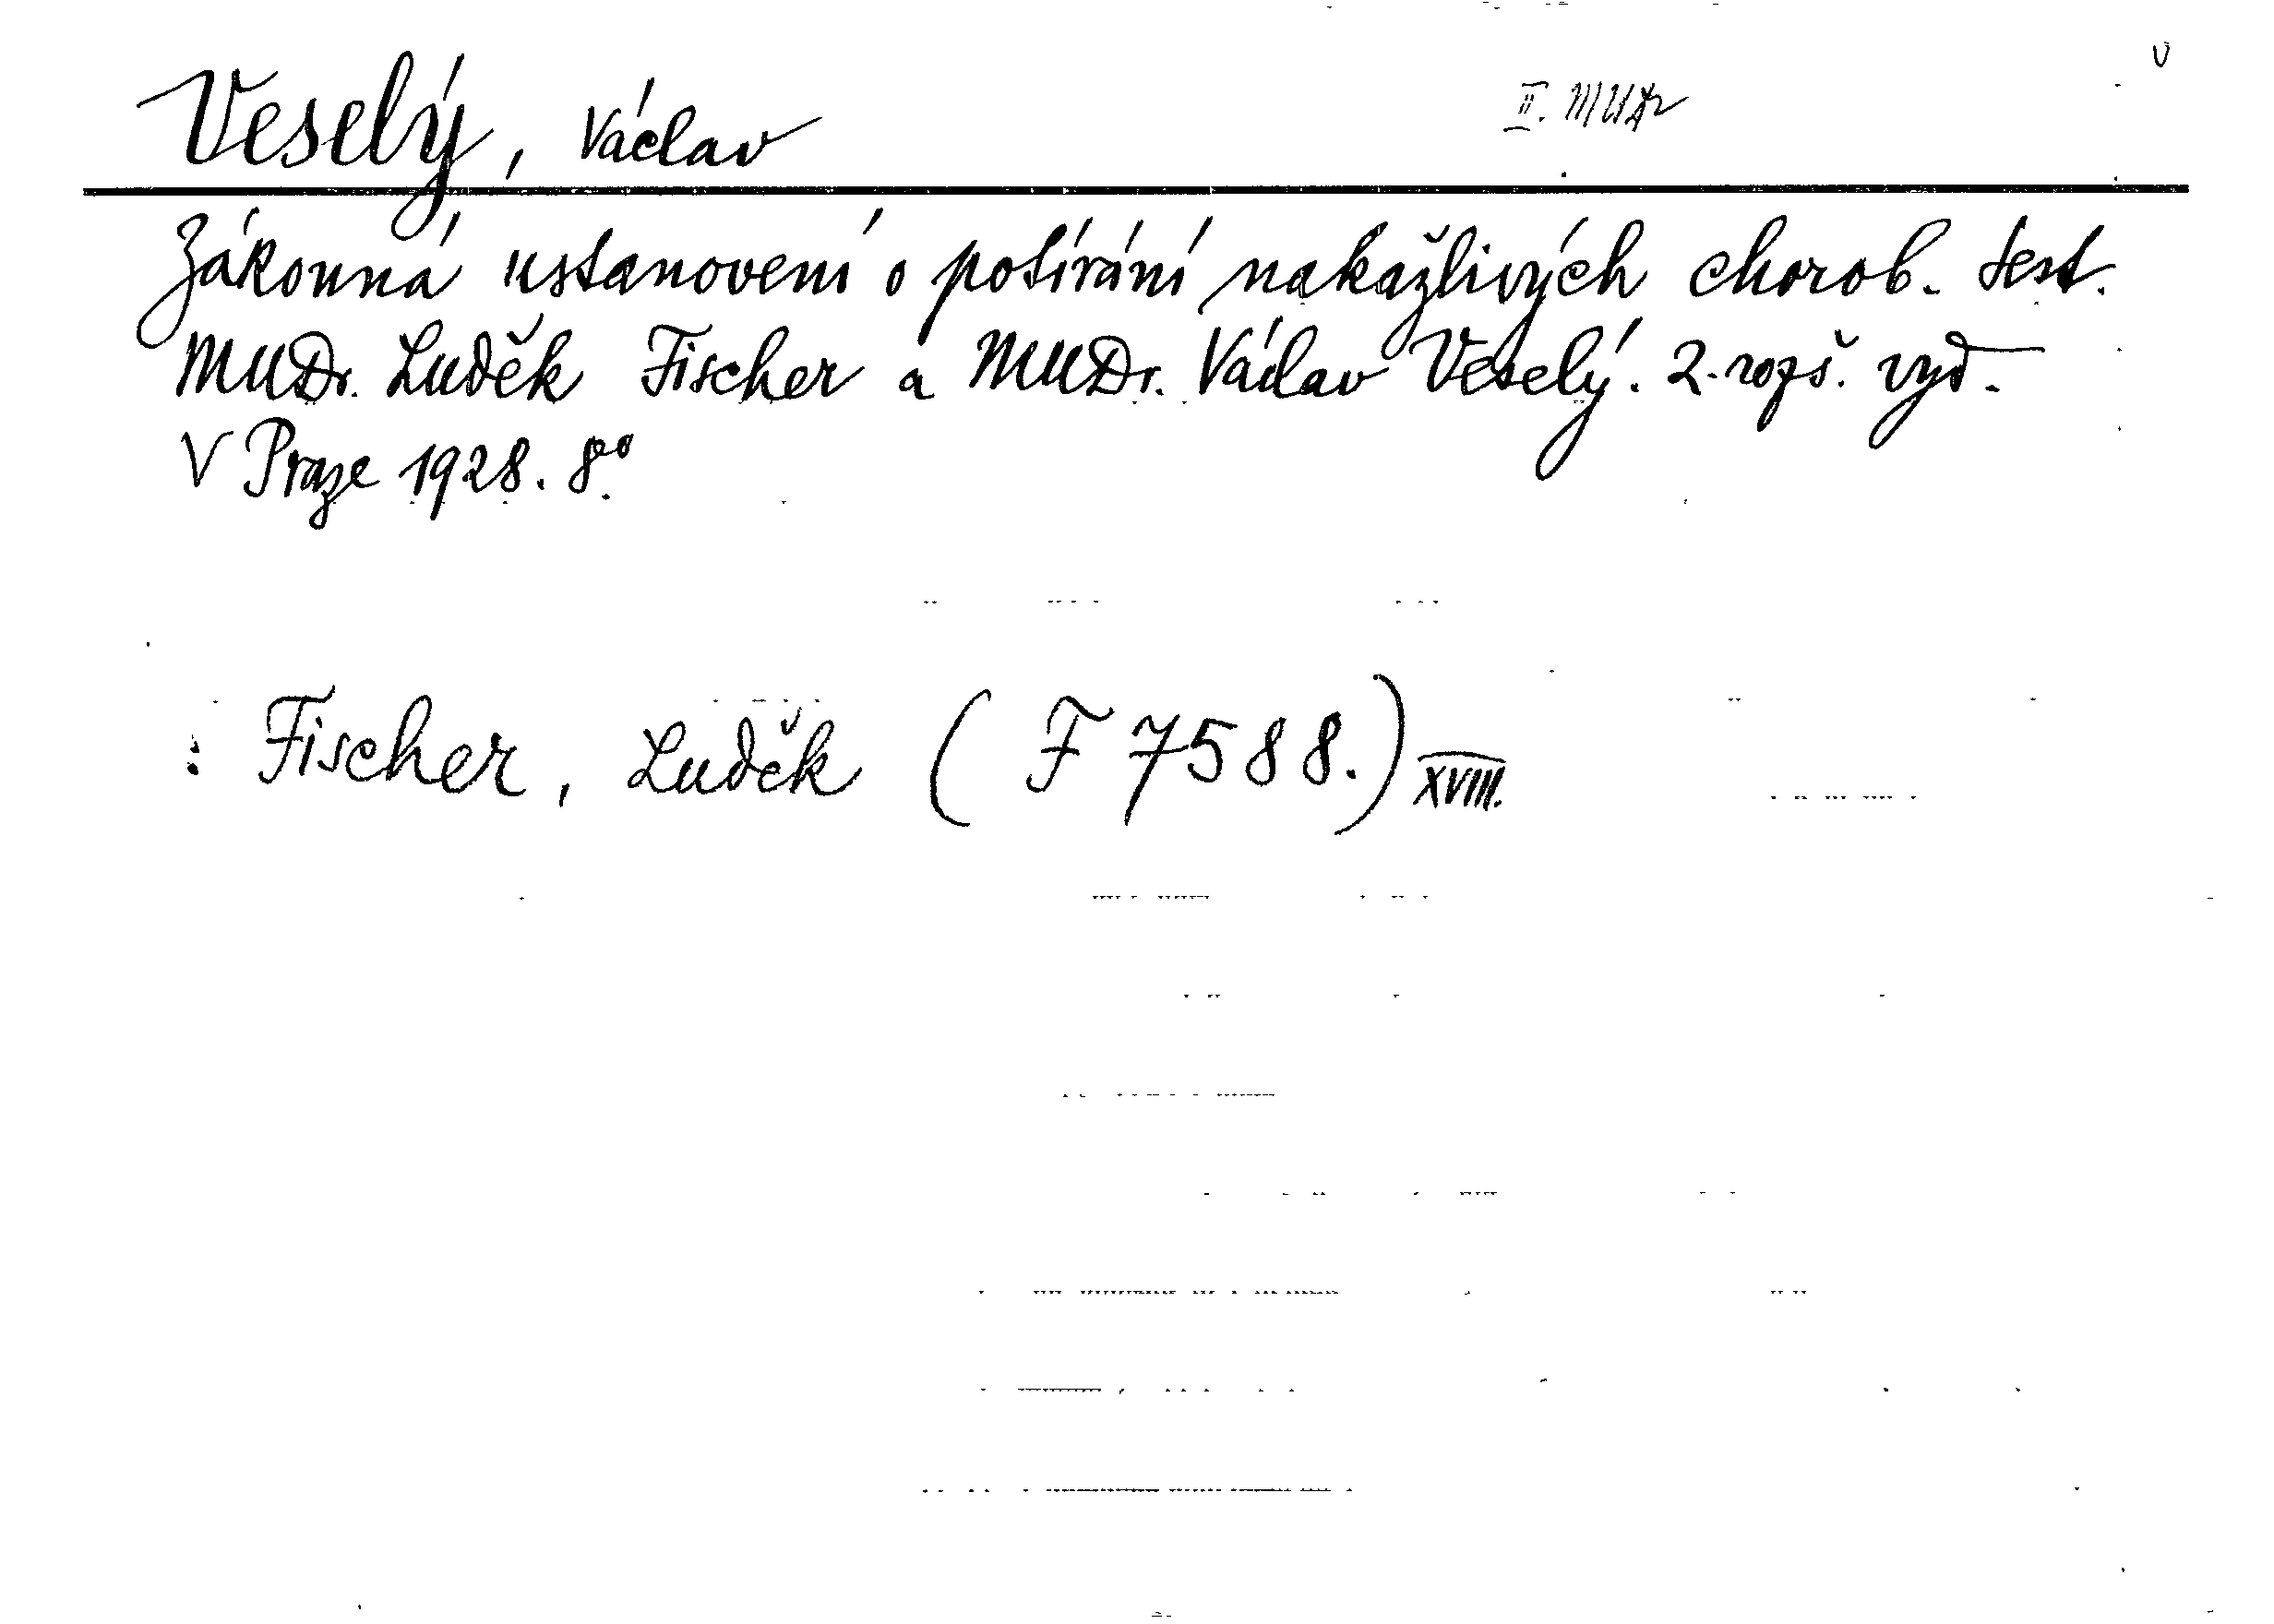 v
Veselý, Václav II. MUDr
Zákonná ustanovení o potírání nakažlivých chorob. Sest.
MUDr. Luděk Fischer a MUDr. Václav Veselý. 2. rozš. vyd.
V Praze 1928. 8°.
: Fischer, Luděk (F 7588.) XVIII.